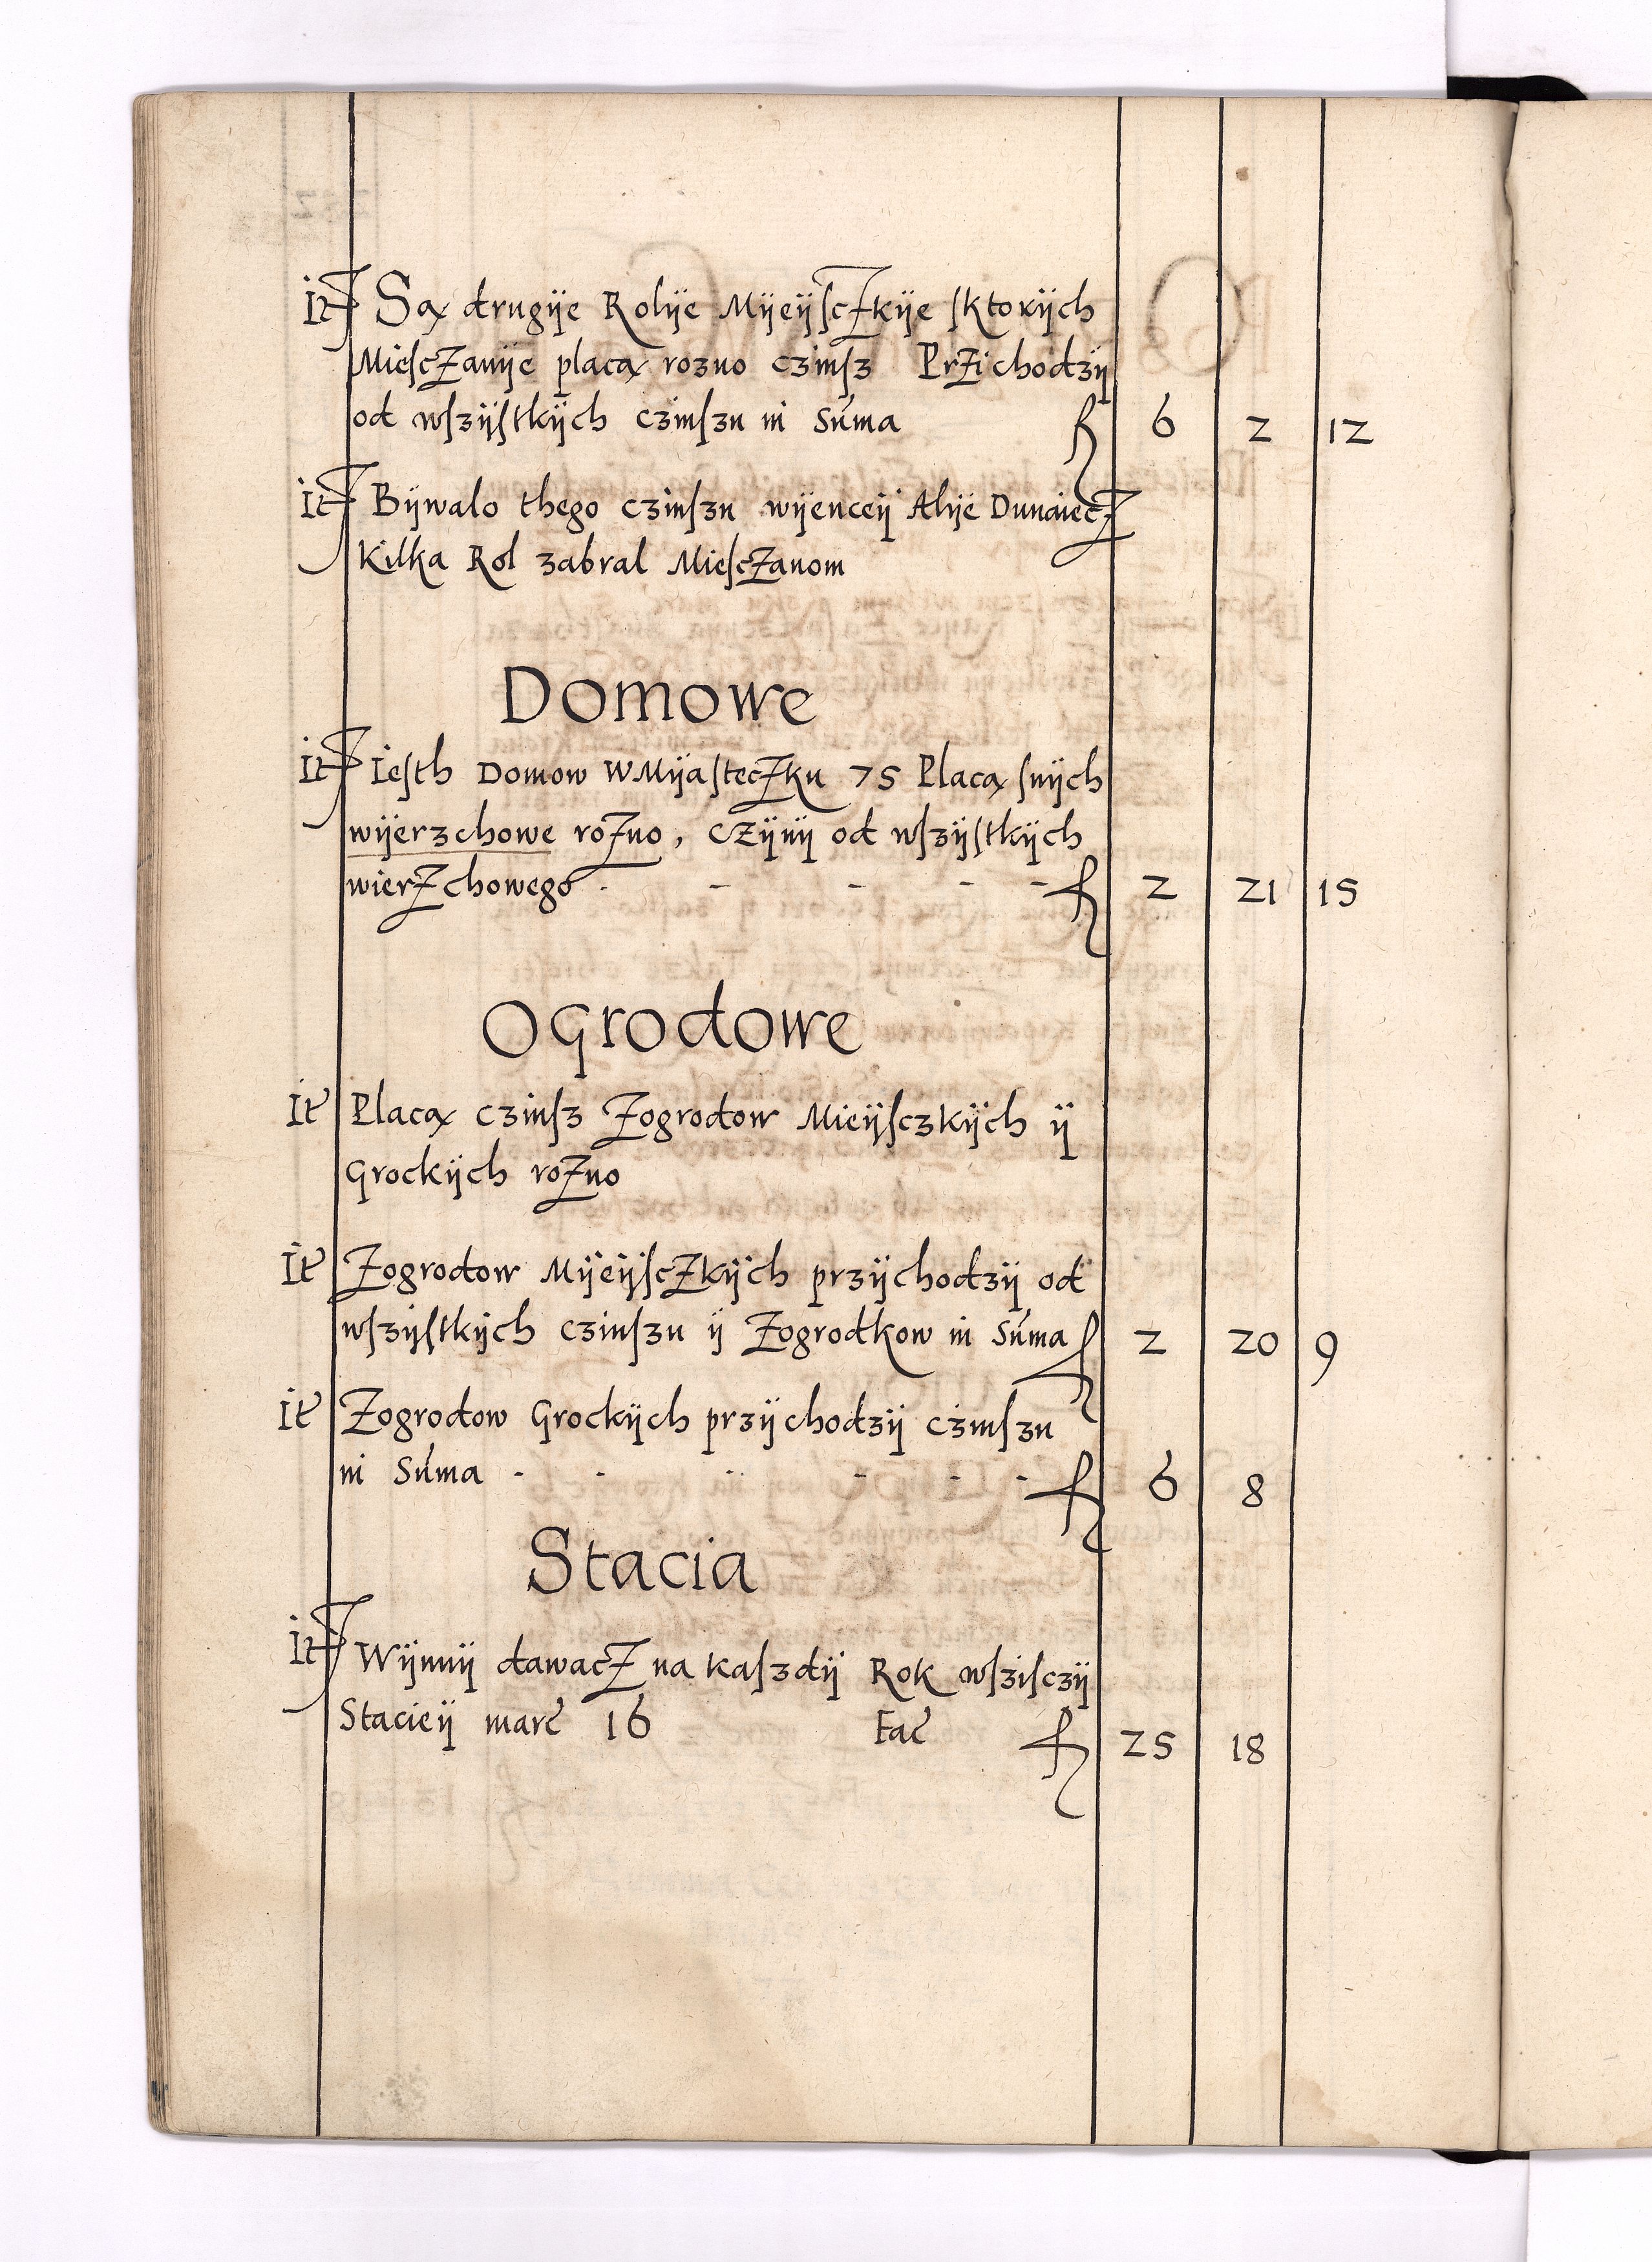 It Są drugÿe Rolÿe Mÿeÿſczkÿe ſktorÿch
Mieſczanÿe placą rozno czinſz Przichodzÿ
od wſzÿſtkÿch czinſzu in Suma f 6 2 12
It Bÿwalo thego czinſzu wÿenceÿ Alÿe Dunaiecz
Kilka Rol zabral Mieſczanom
Domowe
It Ieſth Domow WMÿaſteczku 75 Placą ſnÿch
wÿerzchowe rozno, czÿnÿ od wſzÿſtkÿch
wierzchowego - - - - - f 2 21 15
Ogrodowe
It Placą czinſz Zogrodow Mieÿſczkÿch ÿ
Grockÿch rozno
It Zogrodow Mÿeÿſczkÿch przÿchodzÿ od
wſzÿſtkÿch czinſzu ÿ Zogrodkow in Suma f 2 20 9
It Zogrodow Grockÿch przÿchodzÿ czinſzu
in Suma - - - - - - f 6 8
Stacia
It Wÿnnÿ dawacz na kaſzdÿ Rok wſziſczÿ
Stacieÿ marc 16 Fac f 25 18